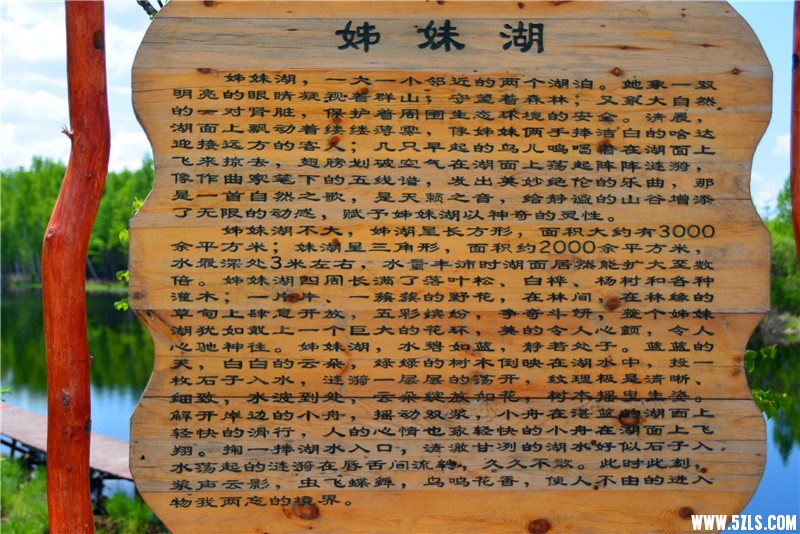 姊妹湖
姊妹湖，一大一小邻近的两个湖泊。她象一双
明亮的眼睛凝视着群山；守望着森林；又象大自然
的一对肾脏，保护着周围生态环境的安全。清晨，
湖面上飘动着缕缕薄雾，像姊妹俩手捧洁白的哈达
迎接远方的客人；几只早起的鸟儿鸣唱着在湖面上
飞来掠去，翅膀划破空气在湖面上荡起阵阵涟漪，
像作曲家笔下的五线谱，发出美妙绝伦的乐曲，那
是一首自然之歌，是天籁之音，给静谧的山谷增添
了无限的动感，赋予姊妹湖以神奇的灵性。
姊妹湖不大，姊湖呈长方形，面积大约有3000
余平方米；妹湖呈三角形，面积约2000余平方米，
水最深处3米左右，水量丰沛时湖面居然能扩大至数
倍。姊妹湖四周长满了落叶松、白桦、杨树和各种
灌木；一片片、一簇簇的野花，在林间，在林缘的
草甸上肆意开放，五彩缤纷，争奇斗妍，整个姊妹
湖犹如戴上一个巨大的花环，美的令人心颤，令人
心驰神往。姊妹湖，水碧如蓝，静若处子。蓝蓝的
天，白白的云朵，绿绿的树木倒映在湖水中，投一
枚石子入水，涟漪一层层的荡开，纹理极是清晰、
细致，水波到处，云朵绽放如花，树木摇曳生姿。
解开岸边的小舟，摇动双桨，小舟在湛蓝的湖面上
轻快的滑行，人的心情也象轻快的小舟在湖面上飞
翔。掬一捧湖水入口，清澈甘冽的湖水好似石子入
水荡起的涟漪在唇舌间流转，久久不散。此时此刻，
桨声云影，虫飞蝶舞，鸟鸣花香，使人不由的进入
物我两忘的境界。
WWW.5ZLS.COM